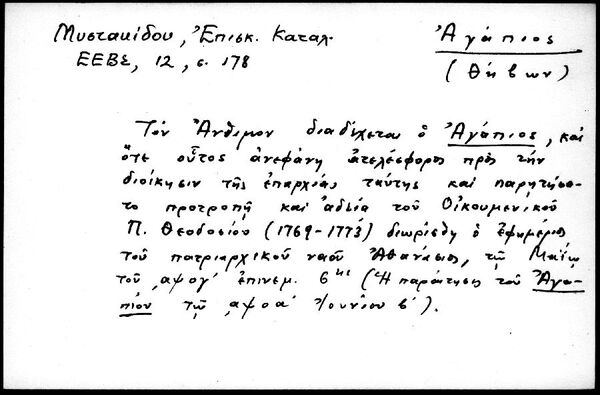 Μυστακίδου, Ἐπισκ. Καταλ.
ΕΕΒΣ, 12, σ. 178
Ἀγάπιος
(Θηβων)
Τὸν Ἄνθιμον διαδέχεται ὁ Ἀγάπιος, καὶ
ὅτε οὗτος ἀνεφάνη ἀτελέσφορος πρὸς τὴν
διοίκησιν τῆς ἐπαρχίας ταύτης καὶ παρῃτήσα-
το προτροπῇ καὶ ἀδείᾳ τοῦ Οἰκουμενικοῦ
Π. Θεοδοσίου (1769-1773) διωρίσθη ὁ ἐφημέριος
τοῦ πατριαρχικοῦ ναοῦ Ἀθανάσιος, τῷ Μαΐῳ
τοῦ ͵αψογ' ἐπινεμ. 6ης (Ἡ παραίτησις τοῦ Ἀγα-
πίου τῷ ͵αψοα' Ἰουνίου β').